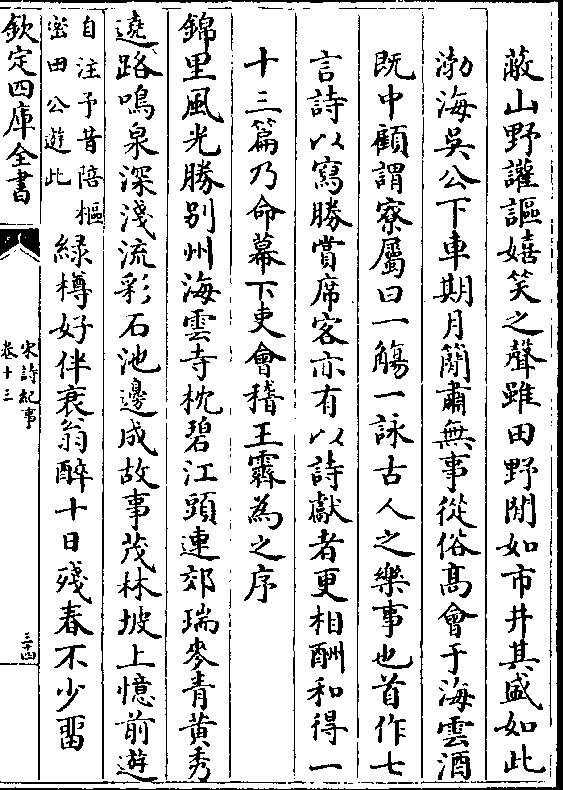 蔽山野讙謳嬉笑之聲雖田野間如市井其盛如此
渤海吳公下車期月簡肅無事從俗髙會于海雲酒
既中顧謂寮屬曰一觴一詠古人之樂事也首作七
言詩以寫勝賞席客亦有以詩獻者更相酬和得一
十三篇乃命幕下吏會稽王霽為之序
錦里風光勝別州海雲寺枕碧江頭連郊瑞麥青黃秀
遶路鳴泉深淺流彩石池邊成故事茂林坡上憶前遊
自注予昔陪樞
宻田公遊此
緑樽好伴衰翁醉十日殘春不少畱
欽定四庫全書
宋詩紀事
卷十三
三十四